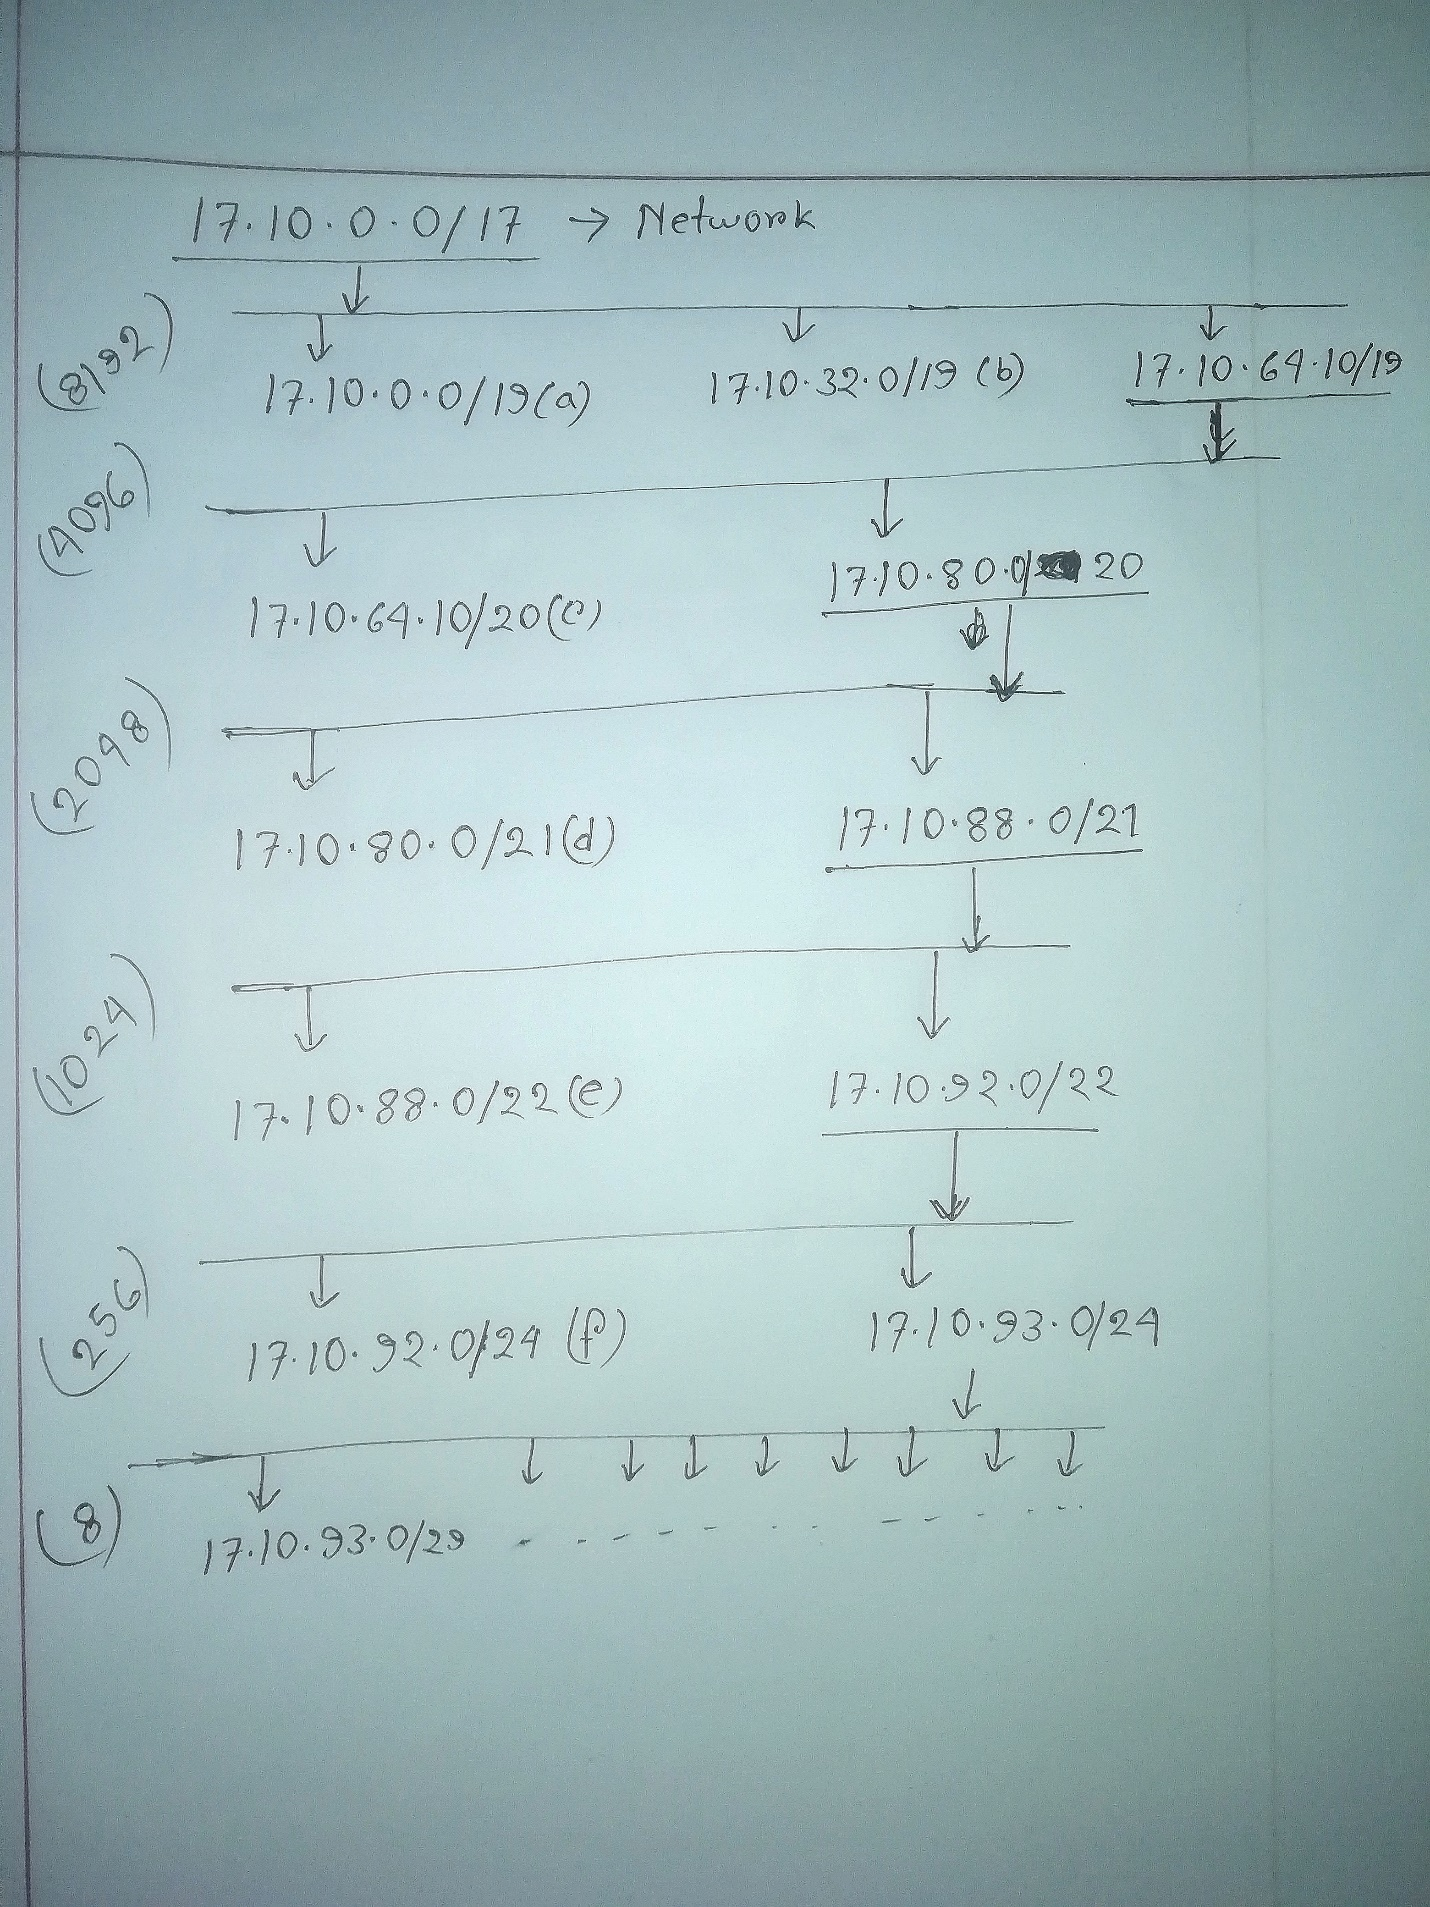 17.10.0.0/17 → Network
(8192)
17.10.0.0/19(a) 17.10.32.0/19 (b) 17.10.64.10/19
(4096)
17.10.80.0/20
17.10.64.10/20(c)
(2048)
17.10.80.0/21(d) 17.10.88.0/21
(1024)
17.10.88.0/22(e) 17.10.92.0/22
(256)
17.10.92.0/24 (f) 17.10.93.0/24
(8)
17.10.93.0/29